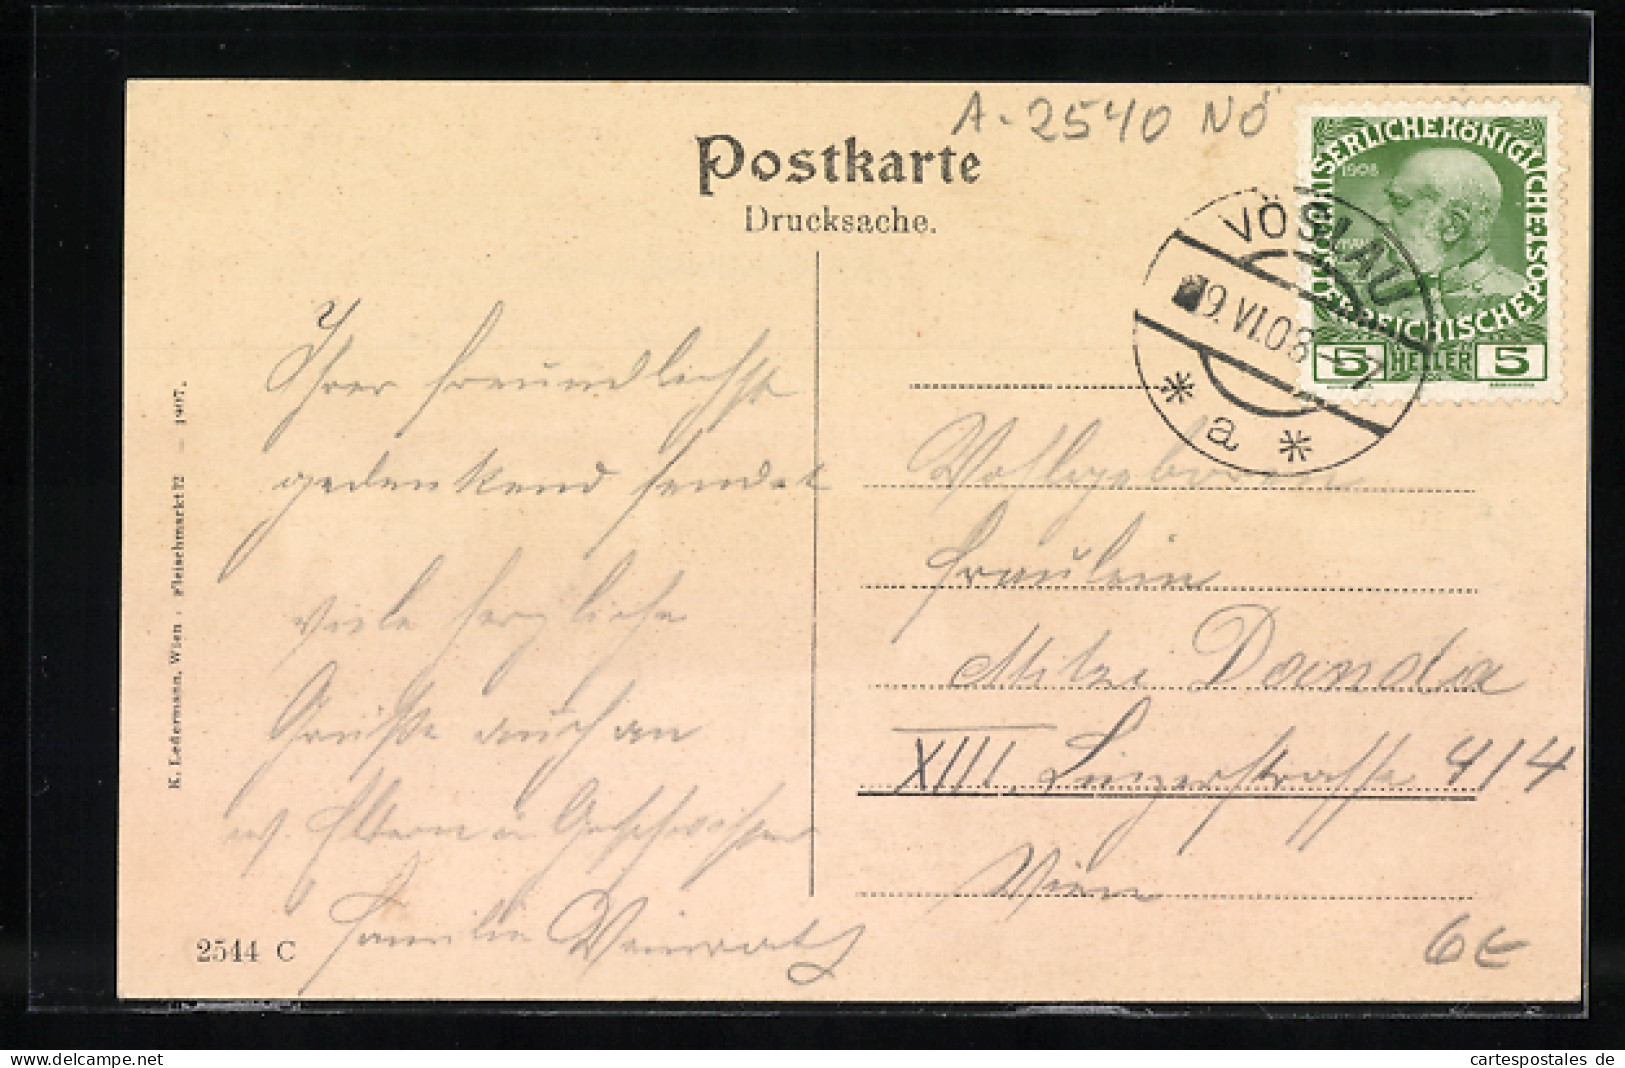 A-2540 NÖ
Postkarte
Drucksache.
KAISERLICHEKÖNIGLICHE ÖSTERREICHISCHE POST
1908
5 HELLER 5
VÖSLAU
19.VI.08
* a *
Ihrer freundlichst
gedenkend sendet
viele herzliche
Grüße auch an
w. Eltern u Geschwister
Familie Weinrath
Wohlgeboren
Fräulein
Mitzi Danda
XIII. Linzerstrasse 414
Wien
K. Ledermann, Wien · Fleischmarkt 12 — 1907.
2544 C
6€
cartespostales de